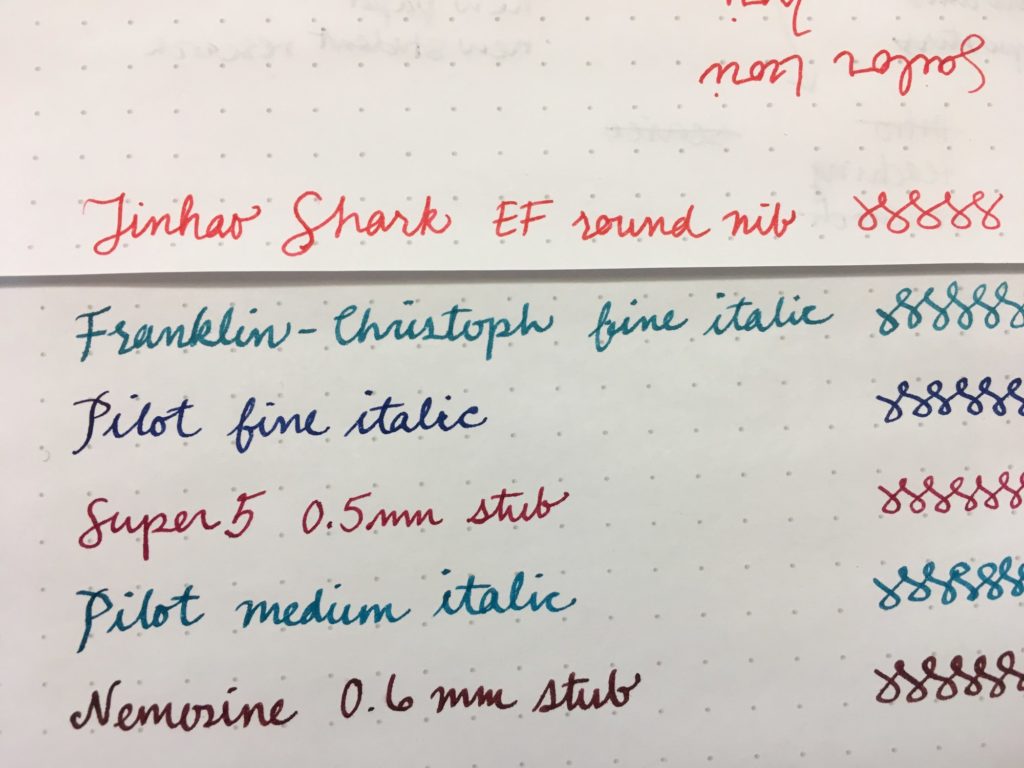 Sailor
Jinhao Shark EF round nib
Franklin-Christoph fine italic
Pilot fine italic
Super5 0.5mm stub
Pilot medium italic
Nemosine 0.6 mm stub